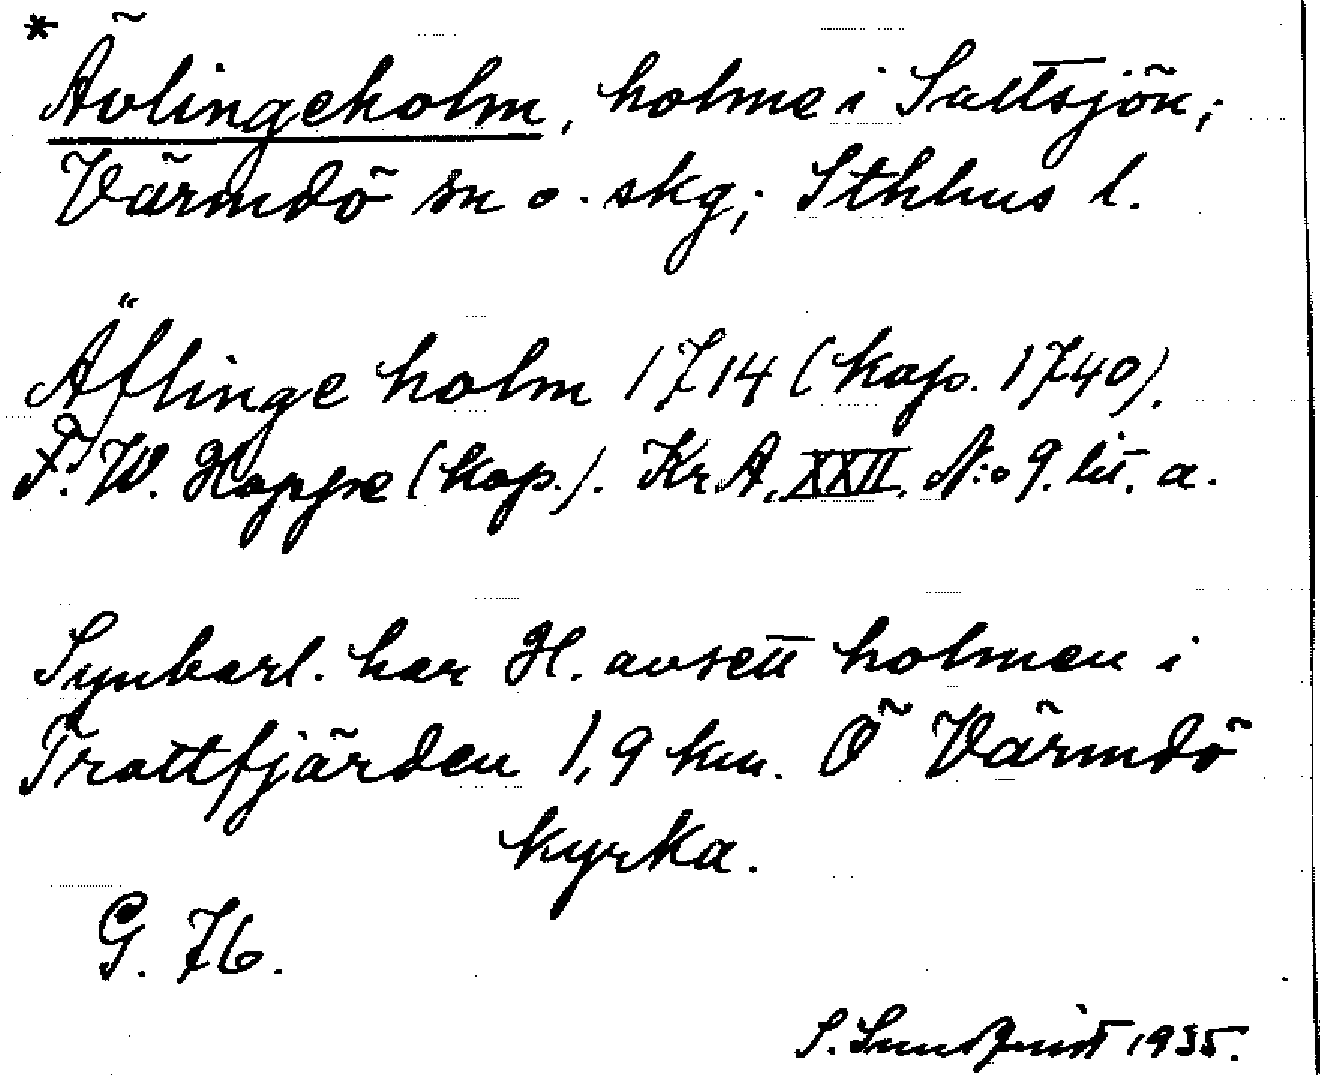 * Ävlingeholm, holme i Saltsjön;
Värmdö sn o. skg; Sthlms l.
Äflinge holm 1714 (kop. 1740).
F. W. Hoppe (kop.). Kr A. XXII. N:o 9. lit. a.
Synbarl. har H. avsett holmen i
Trattfjärden 1,9 km. Ö Värmdö
kyrka.
G. 76.
S. Sundquist 1935.